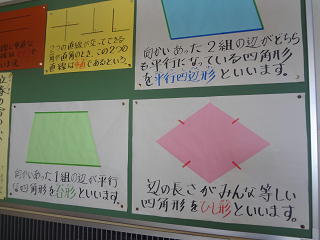 2つの直線が交わってできる
角が直角のとき、この2つの
直線は垂直であるという。
向かいあった2組の辺がどちら
も平行になっている四角形
を平行四辺形といいます。
向かいあった1組の辺が平行
な四角形を台形といいます。
辺の長さがみんな等しい
四角形をひし形といいます。